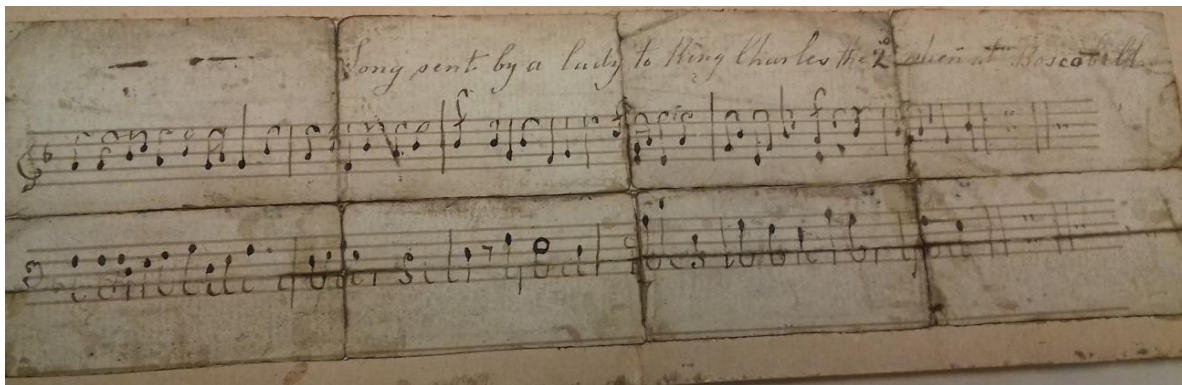 Song sent by a lady to King Charles the 2d when at Boscobell